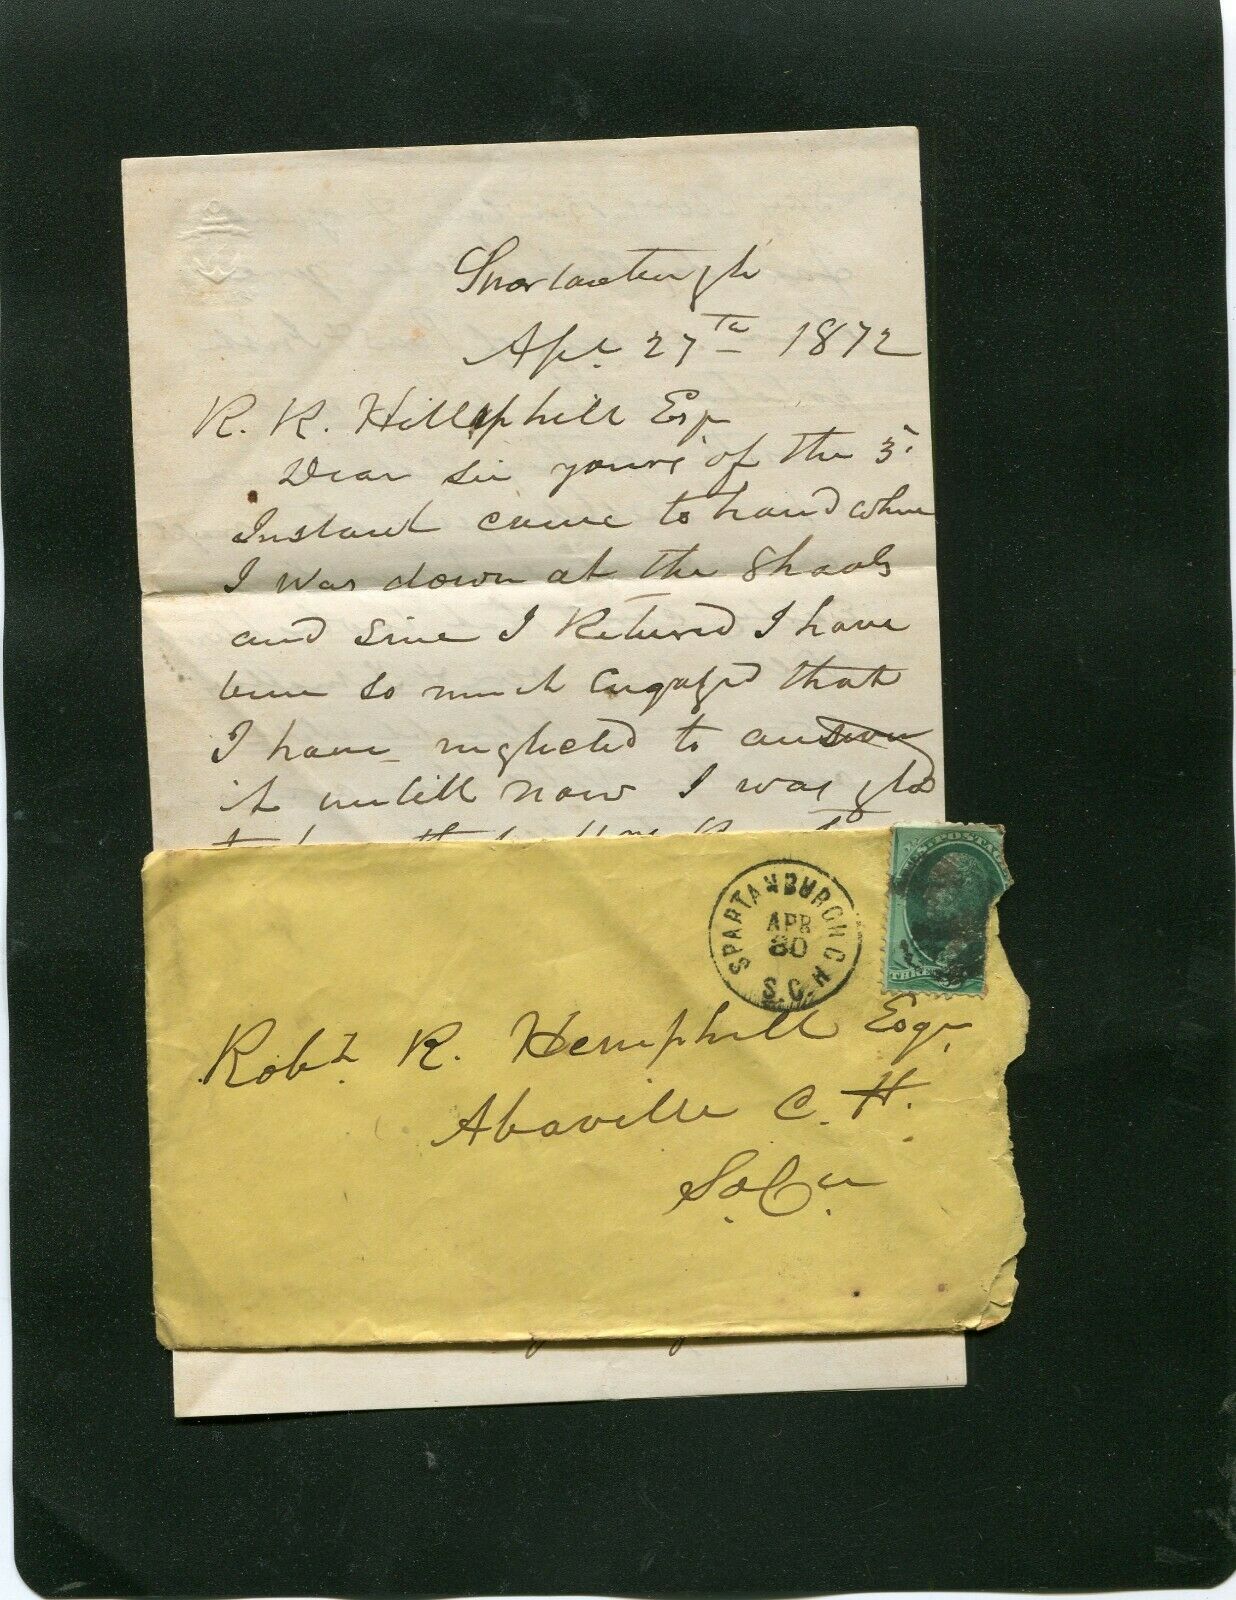 Spartanburgh
Apl. 27th 1872
R. R. Hillphill Esq
Dear Sir yours of the 3.
Instant came to hand when
I was down at the Shoals
and sine I Retured I have
been so much Engagd that
I have neglected to answer
it untill now I was glad
SPARTANBURGH C.H.
APR
30
S.C.
Robt. R. Hemphill Esqr
Abaville C. H.
So. Ca